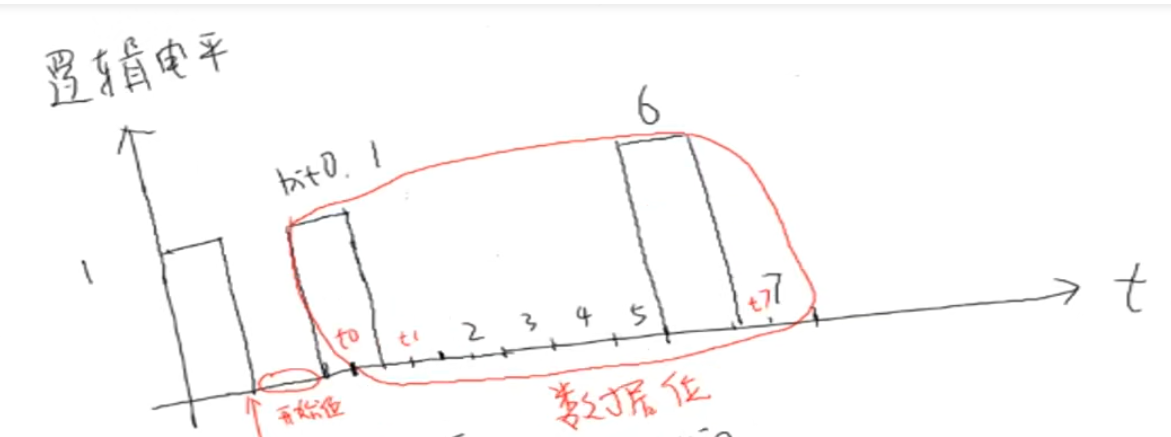 逻辑电平
6
bit0. 1
1
t0 t1 2 3 4 5 t7 7
t
开始位
数据位